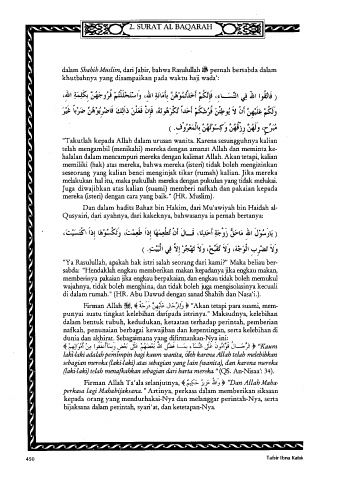 2. SURAT AL BAQARAH
dalam Shahih Muslim, dari Jabir, bahwa Rasulullah ﷺ pernah bersabda dalam
khutbahnya yang disampaikan pada waktu haji wada':
( فَاتَّقُوا اللهَ فِي النِّسَاءِ، فَإِنَّكُمْ أَخَذْتُمُوْهُنَّ بِأَمَانَةِ اللهِ، وَاسْتَحْلَلْتُمْ فُرُوْجَهُنَّ بِكَلِمَةِ اللهِ،
وَلَكُمْ عَلَيْهِنَّ أَنْ لاَ يُوْطِئْنَ فُرُشَكُمْ أَحَدًا تَكْرَهُوْنَهُ، فَإِنْ فَعَلْنَ ذَلِكَ فَاضْرِبُوْهُنَّ ضَرْبًا غَيْرَ
مُبَرِّحٍ، وَلَهُنَّ رِزْقُهُنَّ وَكِسْوَتُهُنَّ بِالْمَعْرُوْفِ. )
"Takutlah kepada Allah dalam urusan wanita. Karena sesungguhnya kalian
telah mengambil (menikahi) mereka dengan amanat Allah dan meminta ke-
halalan dalam mencampuri mereka dengan kalimat Allah. Akan tetapi, kalian
memiliki (hak) atas mereka, bahwa mereka (isteri) tidak boleh mengizinkan
seseorang yang kalian benci menginjak tikar (rumah) kalian. Jika mereka
melakukan hal itu, maka pukullah mereka dengan pukulan yang tidak melukai.
Juga diwajibkan atas kalian (suami) memberi nafkah dan pakaian kepada
mereka (isteri) dengan cara yang baik." (HR. Muslim).
Dan dalam hadits Bahaz bin Hakim, dari Mu'awiyah bin Haidah al-
Qusyairi, dari ayahnya, dari kakeknya, bahwasanya ia pernah bertanya:
( يَارَسُوْلَ اللهِ مَاحَقُّ زَوْجَةِ أَحَدِنَا، قَالَ أَنْ تُطْعِمَهَا إِذَا طَعِمْتَ، وَتَكْسُوَهَا إِذَا اكْتَسَيْتَ،
وَلاَ تَضْرِبِ الْوَجْهَ، وَلاَ تُقَبِّحْ، وَلاَ تَهْجُرْ إِلاَّ فِي الْبَيْتِ. )
"Ya Rasulullah, apakah hak istri salah seorang dari kami?" Maka beliau ber-
sabda: "Hendaklah engkau memberikan makan kepadanya jika engkau makan,
memberinya pakaian jika engkau berpakaian, dan engkau tidak boleh memukul
wajahnya, tidak boleh menghina, dan tidak boleh juga mengisolasinya kecuali
di dalam rumah." (HR. Abu Dawud dengan sanad Shahih dan Nasa'i.).
Firman Allah ﷻ, ﴿ وَلِلرِّجَالِ عَلَيْهِنَّ دَرَجَةٌ ﴾ "Akan tetapi para suami, mem-
punyai suatu tingkat kelebihan daripada istrinya." Maksudnya, kelebihan
dalam bentuk tubuh, kedudukan, ketaatan terhadap perintah, pemberian
nafkah, penunaian berbagai kewajiban dan kepentingan, serta kelebihan di
dunia dan akhirat. Sebagaimana yang difirmankan-Nya ini:
﴿ الرِّجَالُ قَوَّامُونَ عَلَى النِّسَاءِ بِمَا فَضَّلَ اللهُ بَعْضَهُمْ عَلَى بَعْضٍ وَبِمَا أَنفَقُوا مِنْ أَمْوَالِهِمْ ﴾ "Kaum
laki-laki adalah pemimpin bagi kaum wanita, oleh karena Allah telah melebihkan
sebagian mereka (laki-laki) atas sebagian yang lain (wanita), dan karena mereka
(laki-laki) telah menafkahkan sebagian dari harta mereka." (QS. An-Nisaa': 34).
Firman Allah Ta'ala selanjutnya, ﴿ وَاللهُ عَزِيزٌ حَكِيمٌ ﴾ "Dan Allah Maha-
perkasa lagi Mahabijaksana." Artinya, perkasa dalam memberikan siksaan
kepada orang yang mendurhakai-Nya dan melanggar perintah-Nya, serta
bijaksana dalam perintah, syari'at, dan ketetapan-Nya.
450
Tafsir Ibnu Katsir